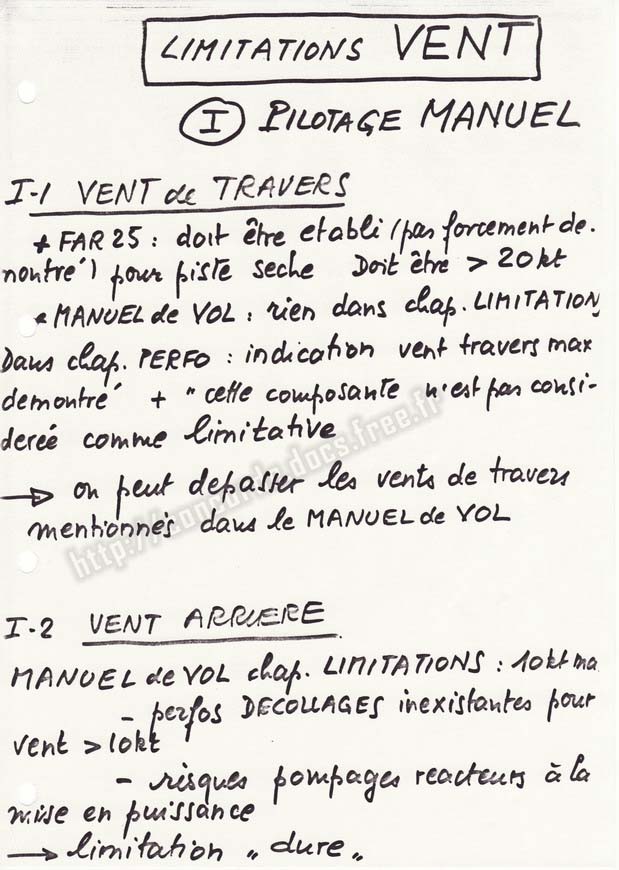 LIMITATIONS VENT
I PILOTAGE MANUEL
I-1 VENT de TRAVERS
+ FAR 25 : doit être etabli (pas forcement de.
montré) pour piste seche Doit être > 20kt
* MANUEL de VOL : rien dans chap. LIMITATION
Dans chap. PERFO : indication vent travers max
demontré + " cette composante n'est pas consi-
dereé comme limitative
→ on peut depasser les vents de travers
mentionnés dans le MANUEL de VOL
I-2 VENT ARRIERE
MANUEL de VOL chap. LIMITATIONS : 10kt ma
- perfos DECOLLAGES inexistantes pour
vent > 10kt
- risques pompages reacteurs à la
mise en puissance
→ limitation " dure "